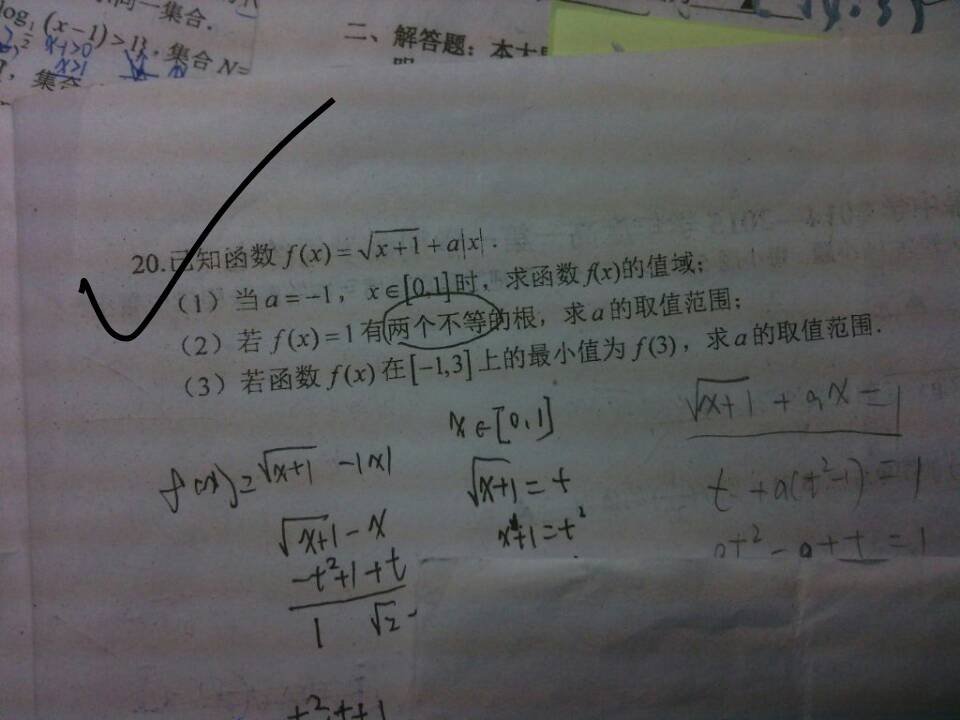 同一集合.
log½(x−1)>1}, 集合 N=
x-1>0
x>1
集合
二、解答题：本大
20.已知函数 f(x)=√(x+1)+a|x|.
（1）当 a=−1，x∈[0,1]时，求函数 f(x)的值域；
（2）若 f(x)=1有两个不等的根，求 a 的取值范围；
（3）若函数 f(x)在[−1,3]上的最小值为 f(3)，求 a 的取值范围.
x∈[0,1]
√(x+1) + ax = 1
f(x)=√(x+1) -|x|
√(x+1)=t
t + a(t²-1) = 1
√(x+1) - x
x+1=t²
at² - a + t = 1
-t²+1+t
1 √2 -